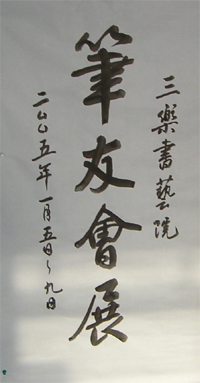 三樂書藝院
筆友會展
二○○五年一月五日~九日